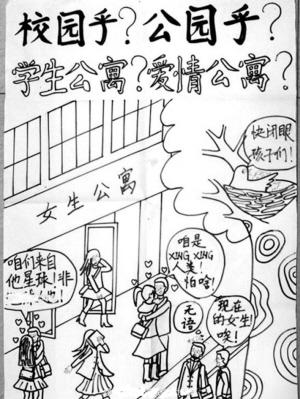 校园乎?公园乎?
学生公寓?爱情公寓?
快闭眼
孩子们!
女生公寓
咱们来自
他星球!非
人也!
咱是
XING XING
人类!
怕啥!
无语
现在
的女生
唉!